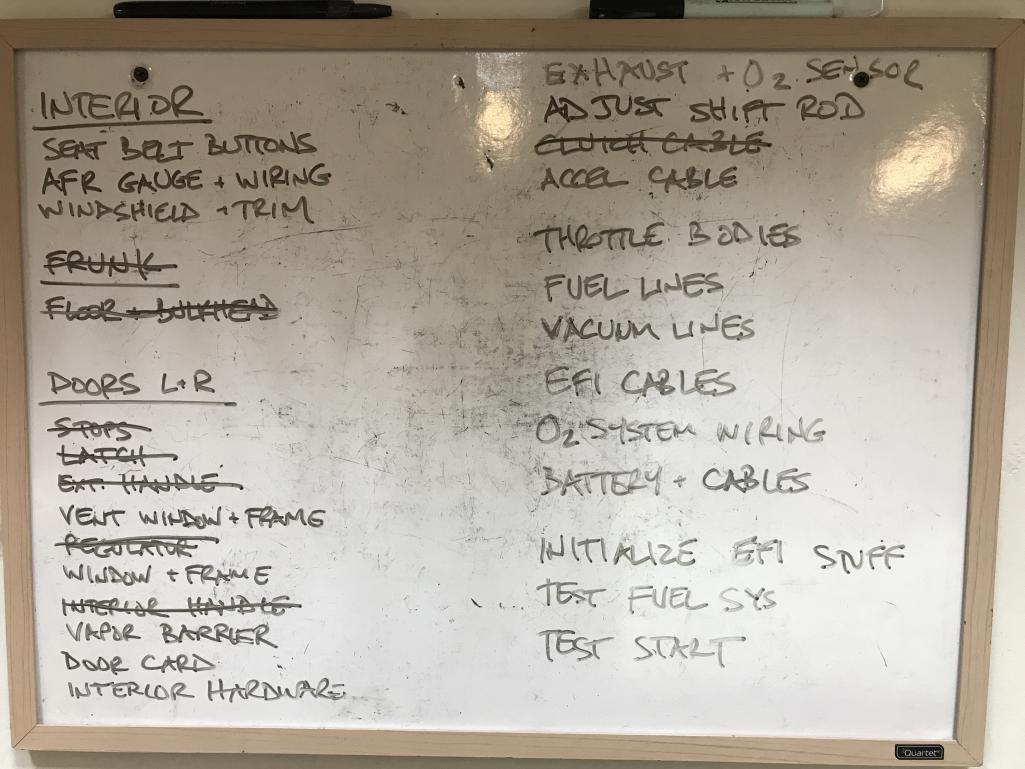 INTERIOR
SEAT BELT BUTTONS
AFR GAUGE + WIRING
WINDSHIELD + TRIM
FRUNK
FLOOR + BULKHEAD
DOORS L+R
STOPS
LATCH
EXT. HANDLE
VENT WINDOW + FRAME
REGULATOR
WINDOW + FRAME
INTERIOR HANDLE
VAPOR BARRIER
DOOR CARD
INTERIOR HARDWARE
EXHAUST + O2 SENSOR
ADJUST SHIFT ROD
CLUTCH CABLE
ACCEL CABLE
THROTTLE BODIES
FUEL LINES
VACUUM LINES
EFI CABLES
O2 SYSTEM WIRING
BATTERY + CABLES
INITIALIZE EFI STUFF
TEST FUEL SYS
TEST START
Quartet